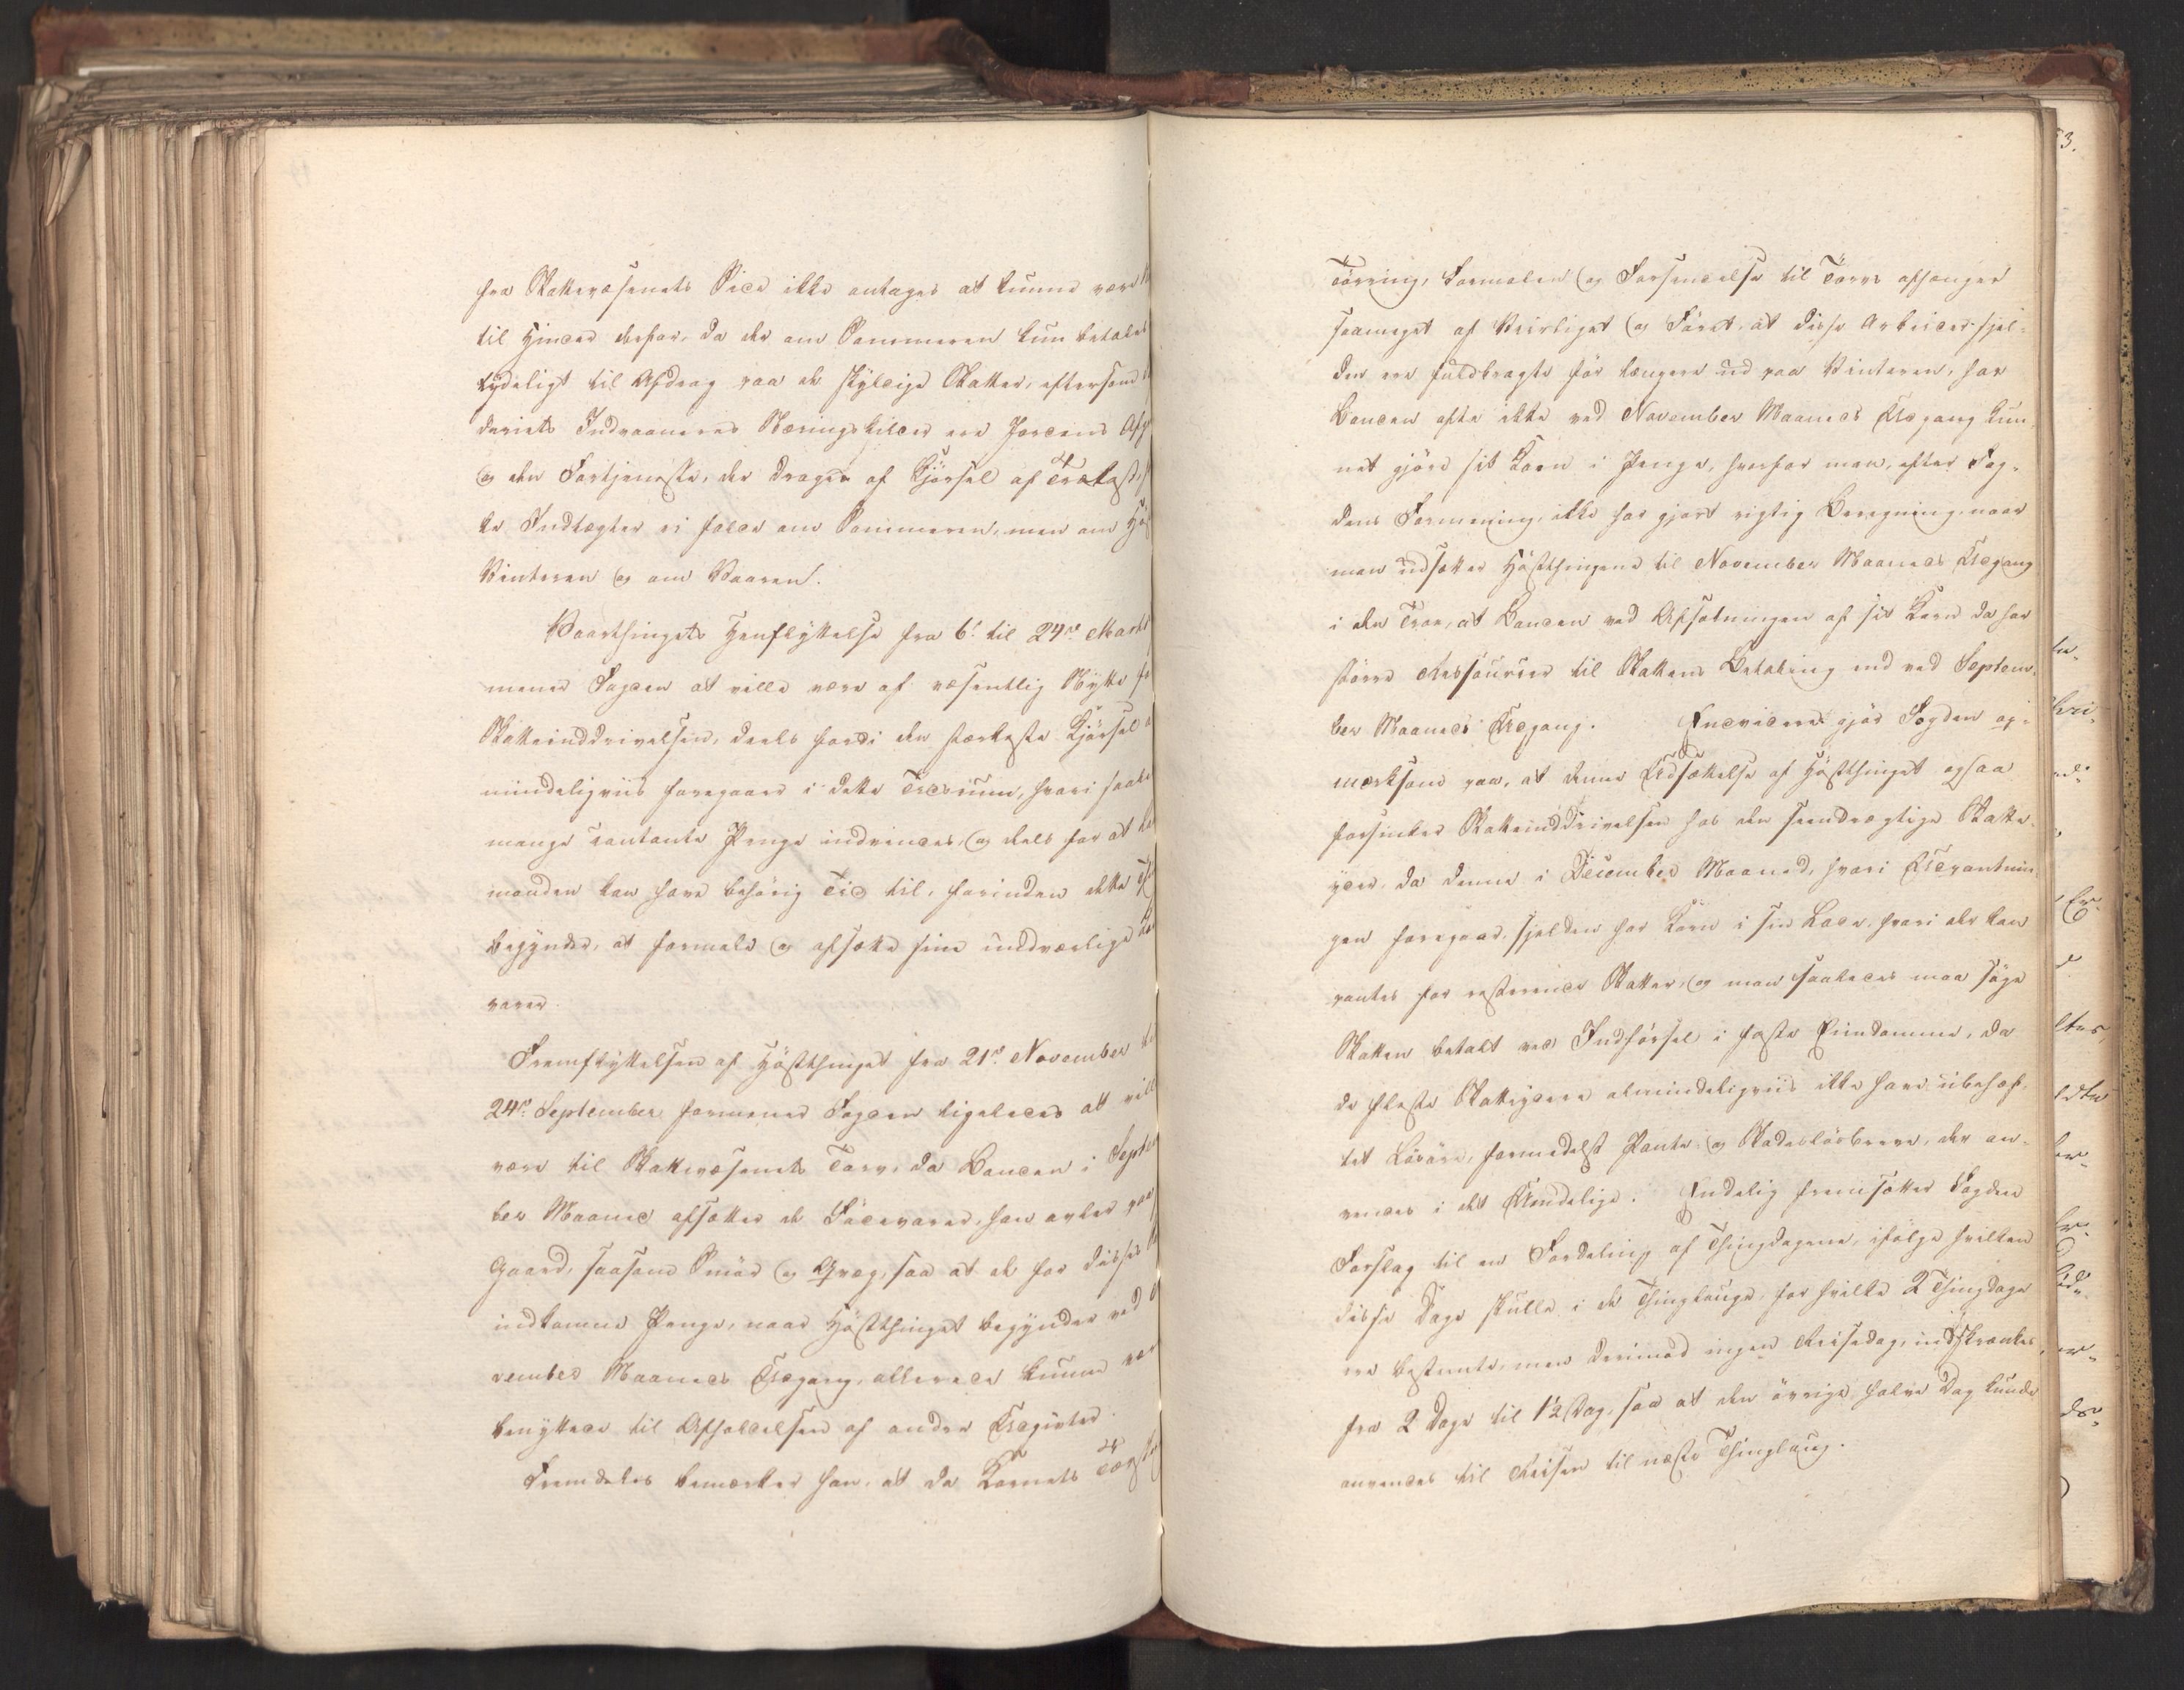 fra Skattevæsenets Side ikke antages at kunne være
til Hinder derfor, da der om Sommeren kun betales
lydeligt til Afdrag paa de skyldige Skatter, eftersom
deriets Indvaaneres Næringskilder ere Jordens
og den Fortjeneste, der drages af Kjørsel af Trælast,
te Indtægter ei falde om Sommeren, men om
Vinteren og om Vaaren.
Vaarthingets Henflyttelse fra 6t. til 24de Marts
mener Fogden at ville være af væsentlig Nytte
Skatteinddrivelsen, deels fordi den stærkeste Kjørsel
mindeligviis foregaaer i dette Tidsrum, hvori
mange contante Penge indvindes, og deels for at
manden kan have behørig Tid til, forinden dette
begynder, at formale og afsætte sine undværlige
varer.
Fremflyttelsen af Høstthinget fra 21de November
24de September formener Fogden ligeledes at
være til Skattevæsenets Tarv, da Bonden i
ber Maaned afsætter de Fødevarer, han avler paa
Gaard, saasom Smør og Qvæg, saa at de for disses
indkomne Penge, naar Høstthinget begynder ved
vember Maaneds Udgang, allerede kunne
benyttede til Afholdelsen af andre Udgivter.
Fremdeles bemærker han, at da Kornets
Tørring, Formalen og Forsendelse til Torvs afhænger
saameget af Veirliget og Føret, at disse Arbeider sjel-
den ere fuldbragte før længere ud paa Vinteren, har
Bonden ofte ikke ved November Maaneds Udgang kun-
net gjøre sit Korn i Penge, hvorfor man, efter Fog-
dens Formening, ikke har gjort rigtig Beregning, naar
man udsætter Høstthingene til November Maaneds Udgang
i den Troe, at Bonden ved Afsætningen af sit Korn da har
større Ressourcer til Skattens Betaling end ved Septem-
ber Maaneds Udgang. Endvidere gjør Fogden op-
mærksom paa, at denne Udsættelse af Høstthinget ogsaa
forsinker Skatteinddrivelsen hos den seendrægtige Skatte-
yder, da denne i December Maaned, hvori Udpantnin-
gen foregaaer, sjelden har Korn i sin Lade, hvori der kan
pantes for resterende Skatter, og man saaledes maa søge
Skatten betalt ved Indførsel i faste Eiendomme, da
de fleste Skatteydere almindeligviis ikke have ubehæf-
tet Løsøre, formedelst Pante- og Skadesløsbreve, der an-
vendes i det Uendelige. Endelig fremsætter Fogden
Forslag til en Fordeling af Thingdagene, ifølge hvilken
disse Dage skulle i de Thinglauge, for hvilke 2 Thingdage
ere bestemte, men derimod ingen Reisedag, indskrænkes
fra 2 Dage til 1½ Dag, saa at den øvrige halve Dag kunde
anvendes til Reisen til næste Thinglaug.